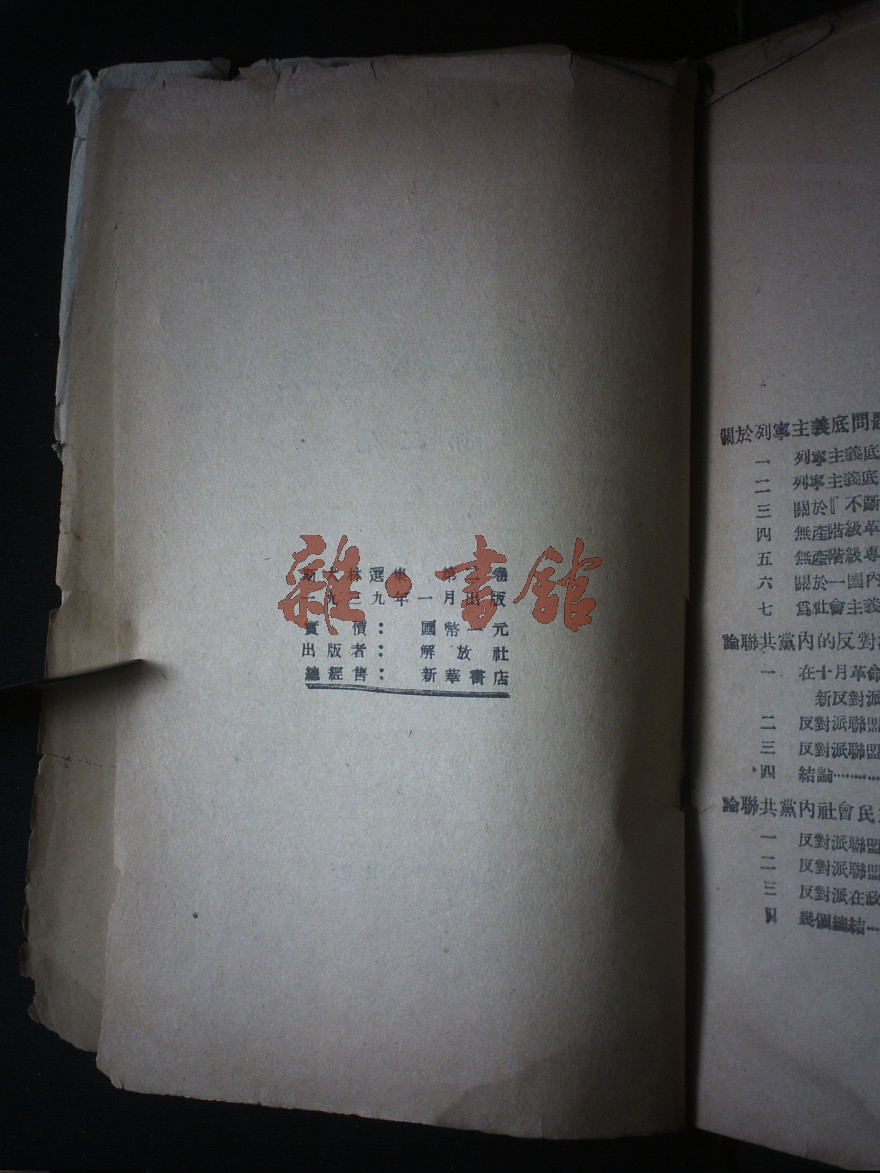 斯大林選集 第二卷
一九三九年一月出版
實價：國幣一元
出版者：解放社
總經售：新華書店
雜·書館
關於列寧主義底問題
一 列寧主義底
二 列寧主義底
三 關於『不斷
四 無產階級革
五 無產階級專
六 關於一國內
七 爲社會主義
論聯共黨內的反對
一 在十月革命
新反對派
二 反對派聯盟
三 反對派聯盟
四 結論
論聯共黨內社會民
一 反對派聯盟
二 反對派聯盟
三 反對派在政
四 幾個總結